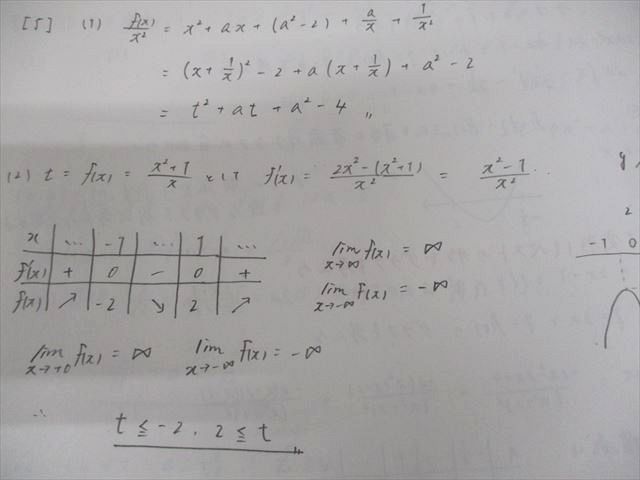 [5] (1) f(x)/x² = x² + ax + (a² - 2) + a/x + 1/x²
= (x + 1/x)² - 2 + a(x + 1/x) + a² - 2
= t² + at + a² - 4 〃
(2) t = f(x) = (x² + 1)/x として f'(x) = (2x² - (x² + 1))/x² = (x² - 1)/x² ..
x | … | -1 | … | 1 | …
f'(x) | + | 0 | - | 0 | +
f(x) | ↗ | -2 | ↘ | 2 | ↗
lim x→∞ f(x) = ∞
lim x→-∞ f(x) = -∞
lim x→+0 f(x) = ∞ lim x→-∞ f(x) = -∞
∴
t ≦ -2, 2 ≦ t 〃
y
2
-1 0